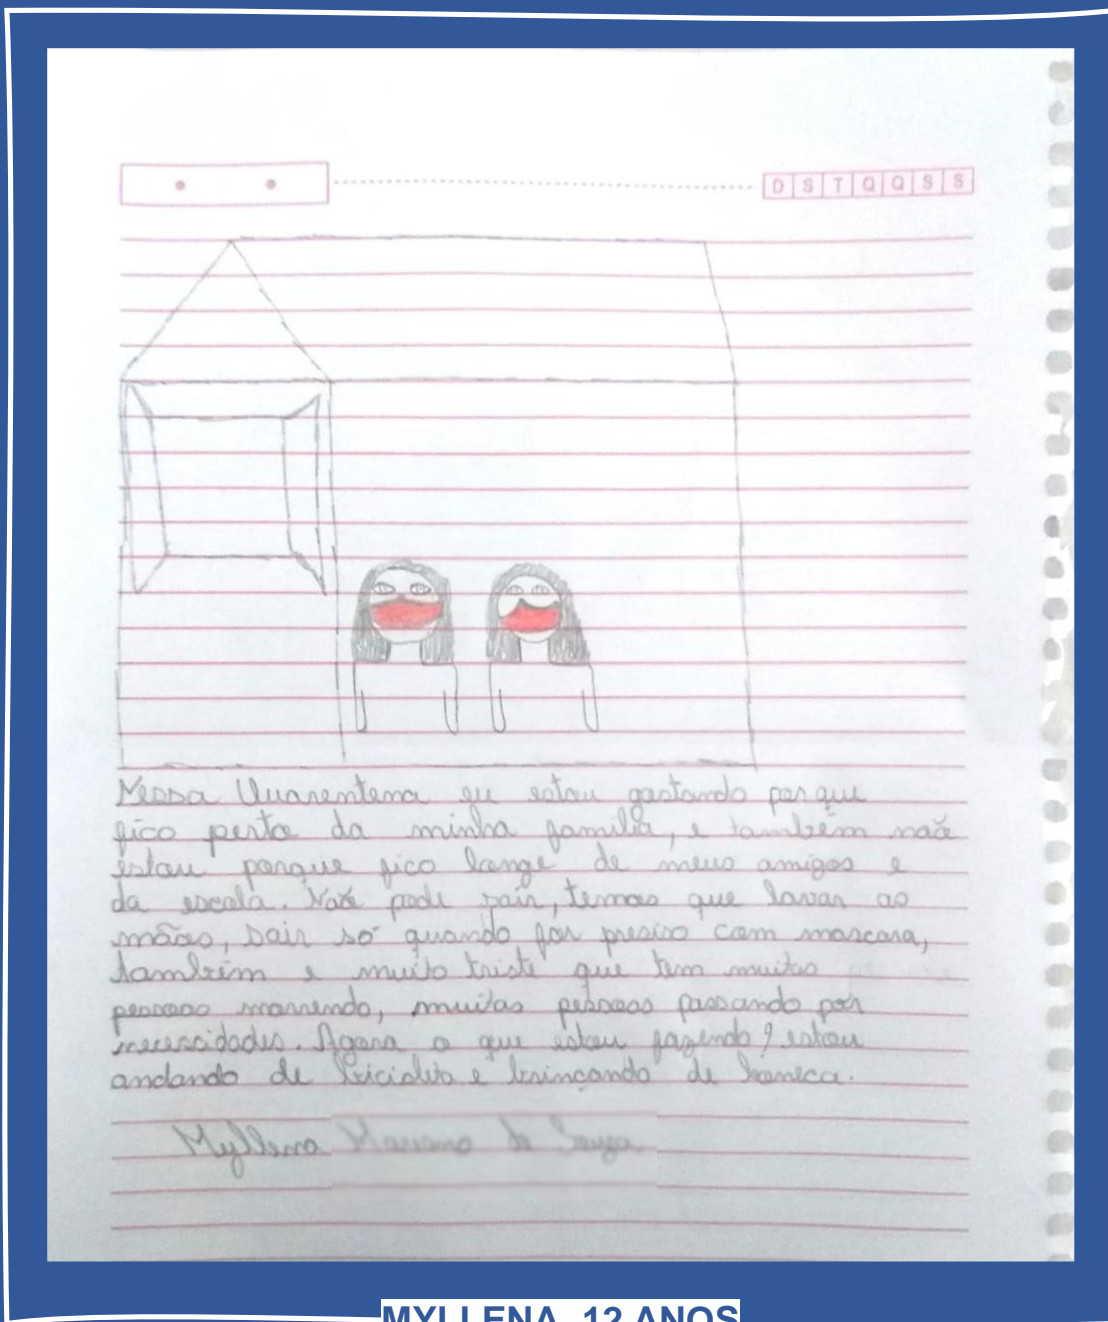 D S T Q Q S S
Nessa Quarentena eu estou gostando por que
fico perto da minha familia, e também não
estou porque fico longe de meus amigos e
da escola. Não pode sair, temos que lavar as
mãos, sair só quando for preciso com mascara,
também e muito triste que tem muitas
pessoas morrendo, muitas pessoas passando por
necessidades. Agora o que estou fazendo? estou
andando de bicicleta e brincando de boneca.
Myllena
MYLLENA, 12 ANOS